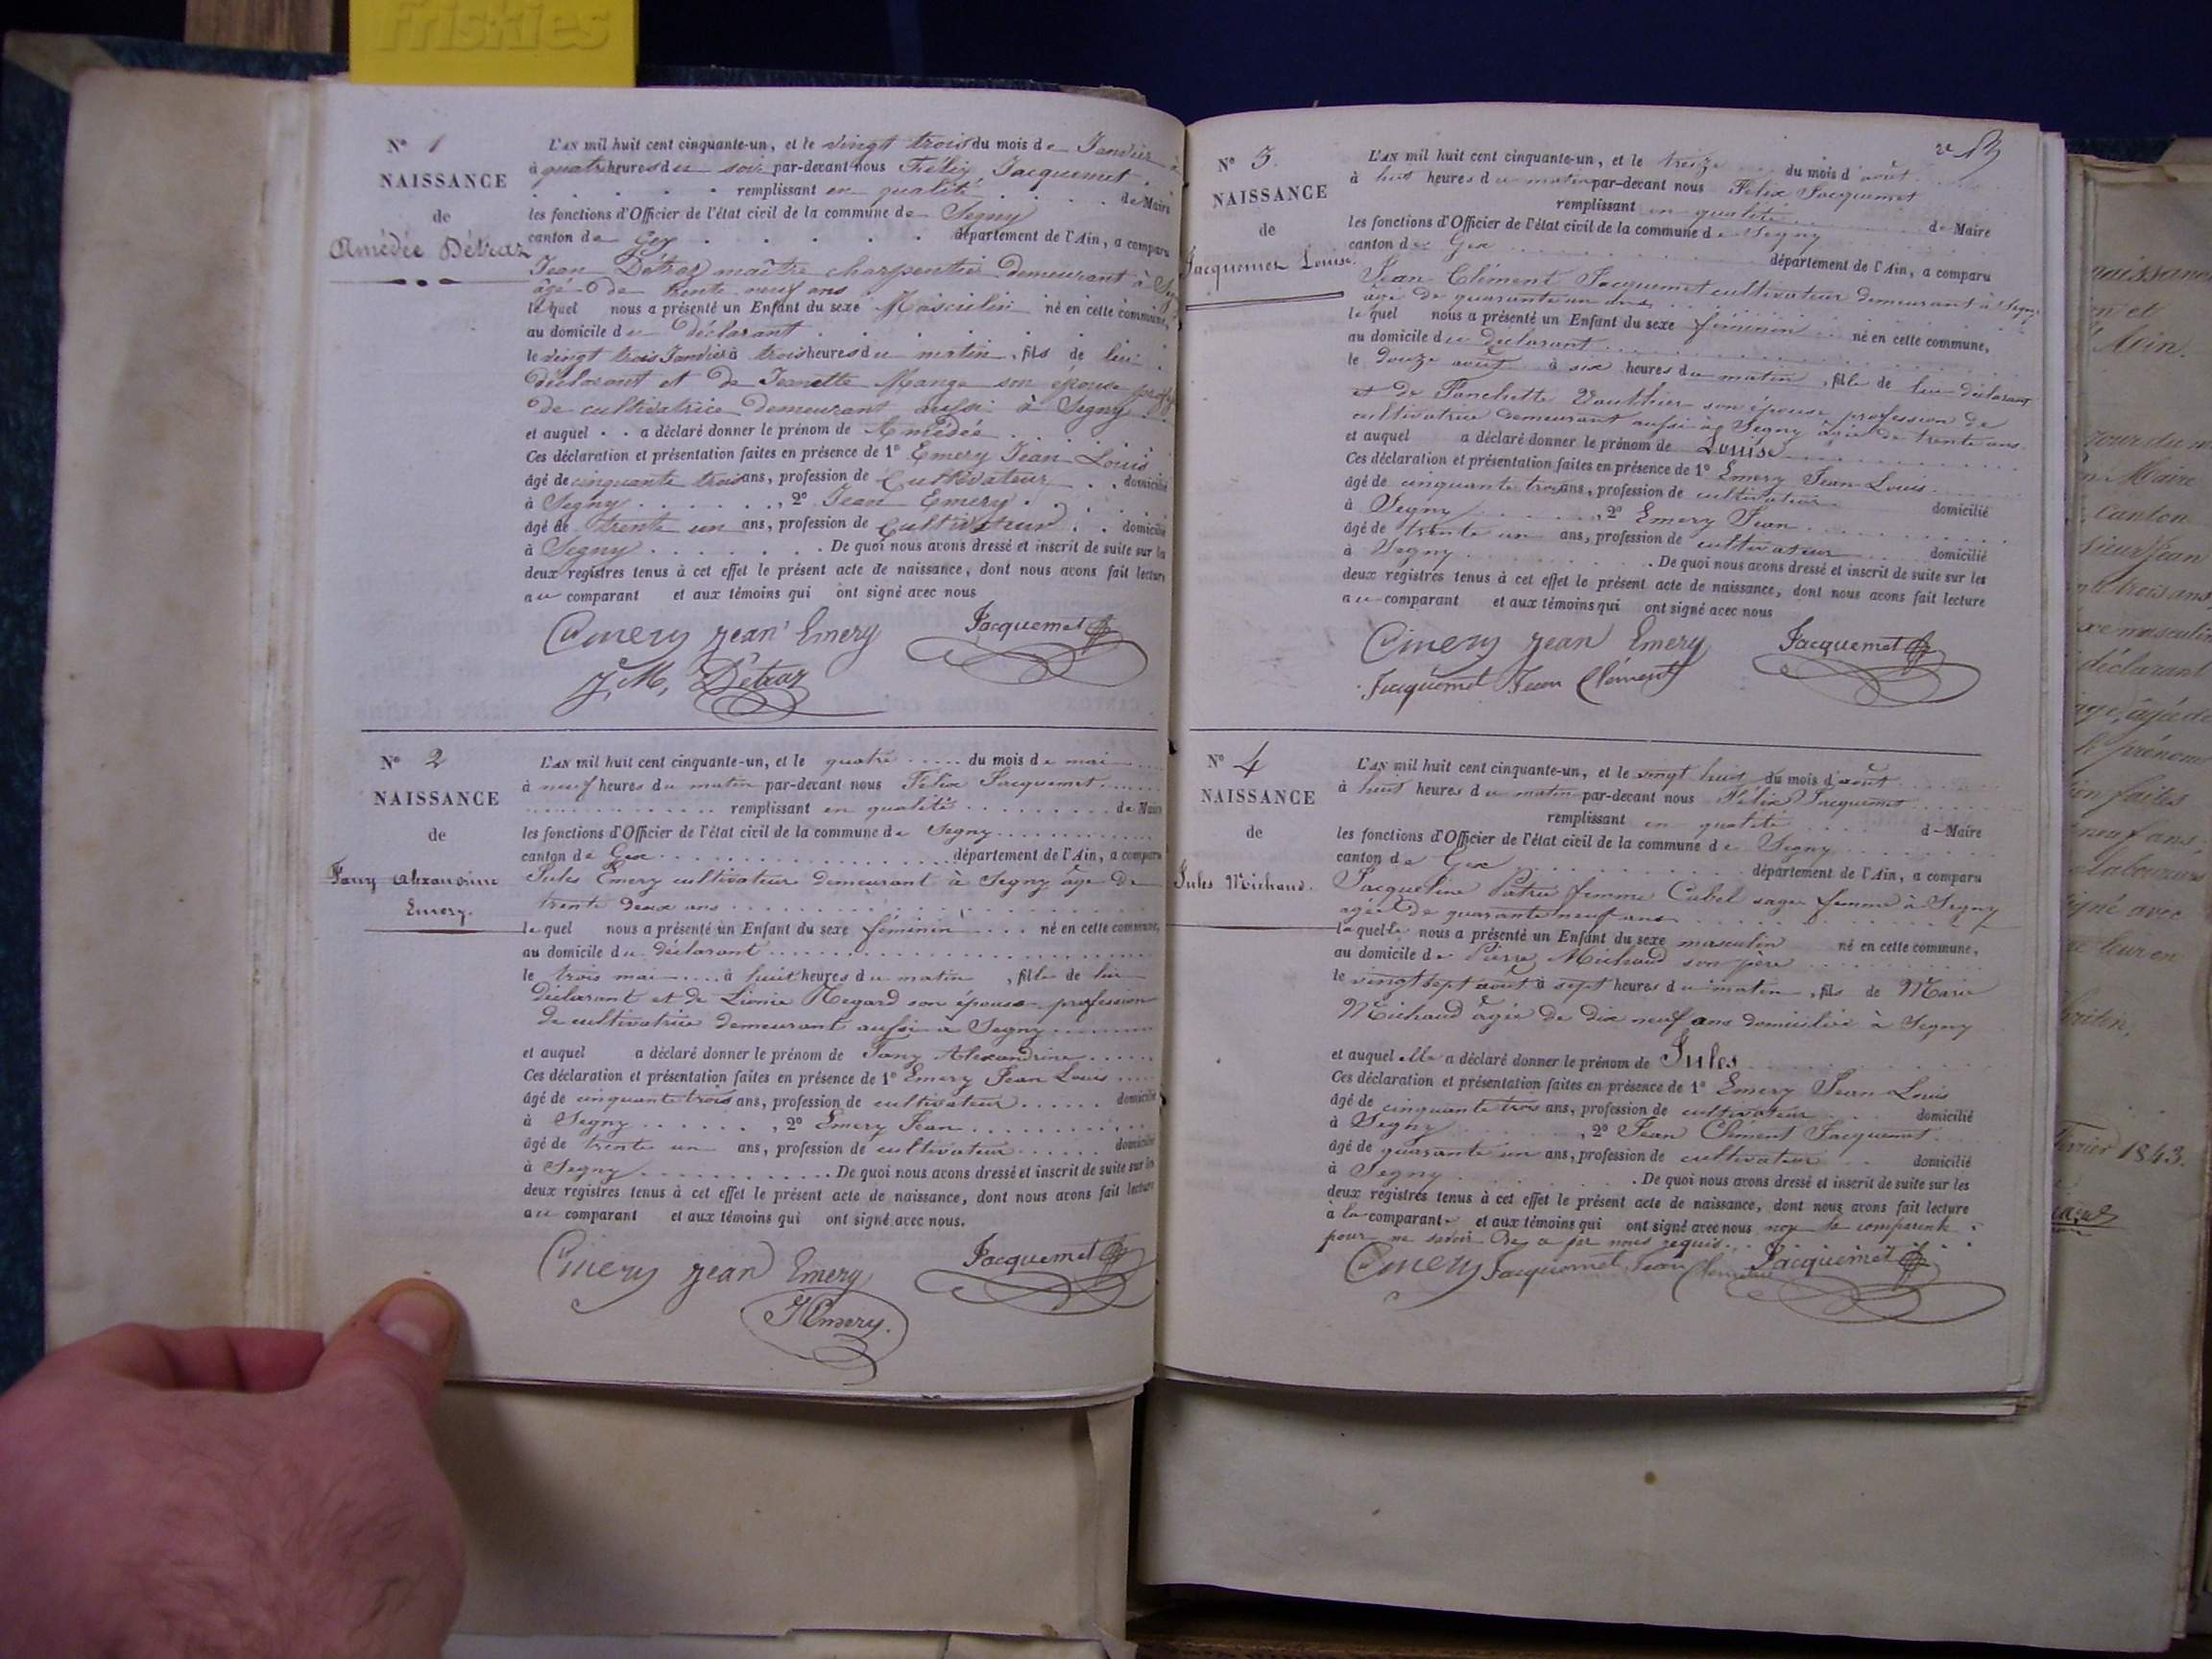 Friskies
N° 1
NAISSANCE
de
Amédée Détraz
L'AN mil huit cent cinquante-un, et le vingt trois du mois de Janvier
à quatre heures du soir par-devant nous Félix Jacquemet
remplissant en qualité de Maire
les fonctions d'Officier de l'état civil de la commune de Segny
canton de Gex département de l'Ain, a comparu
Jean Détraz maître charpentier demeurant à
âgé de trente neuf ans
lequel nous a présenté un Enfant du sexe Masculin né en cette commune,
au domicile du déclarant
le vingt trois Janvier à trois heures du matin, fils de lui
déclarant et de Jeanette Mange son épouse
de cultivatrice demeurant aussi à Segny
et auquel a déclaré donner le prénom de Amédée
Ces déclaration et présentation faites en présence de 1° Emery Jean Louis
âgé de cinquante trois ans, profession de Cultivateur domicilié
à Segny, 2° Jean Emery
âgé de trente un ans, profession de Cultivateur domicilié
à Segny. De quoi nous avons dressé et inscrit de suite sur les
deux registres tenus à cet effet le présent acte de naissance, dont nous avons fait lecture
au comparant et aux témoins qui ont signé avec nous
Emery jean Emery Jacquemet
J. M. Détraz
N° 2
NAISSANCE
de
Fany Alexandrine
Emery.
L'AN mil huit cent cinquante-un, et le quatre du mois de mai
à neuf heures du matin par-devant nous Félix Jacquemet
remplissant en qualité de Maire
les fonctions d'Officier de l'état civil de la commune de Segny
canton de Gex département de l'Ain, a comparu
Jules Emery cultivateur demeurant à Segny âgé de
trente deux ans
lequel nous a présenté un Enfant du sexe féminin né en cette commune,
au domicile du déclarant
le trois mai à huit heures du matin, fille de lui
déclarant et de Léonie Regard son épouse profession
de cultivatrice demeurant aussi à Segny
et auquel a déclaré donner le prénom de Fany Alexandrine
Ces déclaration et présentation faites en présence de 1° Emery Jean Louis
âgé de cinquante trois ans, profession de cultivateur domicilié
à Segny, 2° Emery Jean
âgé de trente un ans, profession de cultivateur domicilié
à Segny. De quoi nous avons dressé et inscrit de suite sur les
deux registres tenus à cet effet le présent acte de naissance, dont nous avons fait lecture
au comparant et aux témoins qui ont signé avec nous.
Emery jean Emery Jacquemet
J Emery.
N° 3.
NAISSANCE
de
Jacquemet Louise.
L'AN mil huit cent cinquante-un, et le treize du mois d'août
à huit heures du matin par-devant nous Félix Jacquemet
remplissant en qualité de Maire
les fonctions d'Officier de l'état civil de la commune de Segny
canton de Gex département de l'Ain, a comparu
Jean Clément Jacquemet cultivateur demeurant à Segny
âgé de quarante un ans
lequel nous a présenté un Enfant du sexe féminin né en cette commune,
au domicile du déclarant
le douze août à six heures du matin, fille de lui déclarant
et de Fanchette Vauthier son épouse profession de
cultivatrice demeurant aussi à Segny âgée de trente ans
et auquel a déclaré donner le prénom de Louise
Ces déclaration et présentation faites en présence de 1° Emery Jean Louis
âgé de cinquante trois ans, profession de cultivateur domicilié
à Segny, 2° Emery Jean
âgé de trente un ans, profession de cultivateur domicilié
à Segny. De quoi nous avons dressé et inscrit de suite sur les
deux registres tenus à cet effet le présent acte de naissance, dont nous avons fait lecture
au comparant et aux témoins qui ont signé avec nous
Emery jean Emery Jacquemet
Jacquemet Jean Clément
N° 4
NAISSANCE
de
Jules Michaud.
L'AN mil huit cent cinquante-un, et le vingt huit du mois d'août
à huit heures du matin par-devant nous Félix Jacquemet
remplissant en qualité de Maire
les fonctions d'Officier de l'état civil de la commune de Segny
canton de Gex département de l'Ain, a comparu
Jacqueline femme Cabel sage femme à Segny
âgée de quarante neuf ans
laquelle nous a présenté un Enfant du sexe masculin né en cette commune,
au domicile de Pierre Michaud son père
le vingt sept août à sept heures du matin, fils de Marie
Michaud âgée de dix neuf ans domiciliée à Segny
et auquel elle a déclaré donner le prénom de Jules
Ces déclaration et présentation faites en présence de 1° Emery Jean Louis
âgé de cinquante trois ans, profession de cultivateur domicilié
à Segny, 2° Jean Clément Jacquemet
âgé de quarante un ans, profession de cultivateur domicilié
à Segny. De quoi nous avons dressé et inscrit de suite sur les
deux registres tenus à cet effet le présent acte de naissance, dont nous avons fait lecture
à la comparante et aux témoins qui ont signé avec nous non la comparante
pour ne savoir De ce par nous requis.
Emery Jacquemet Jean Clément Jacquemet
Ain.
Maire
canton
trois ans
déclarant
prénom
faites
neuf ans,
signé avec
février 1843.